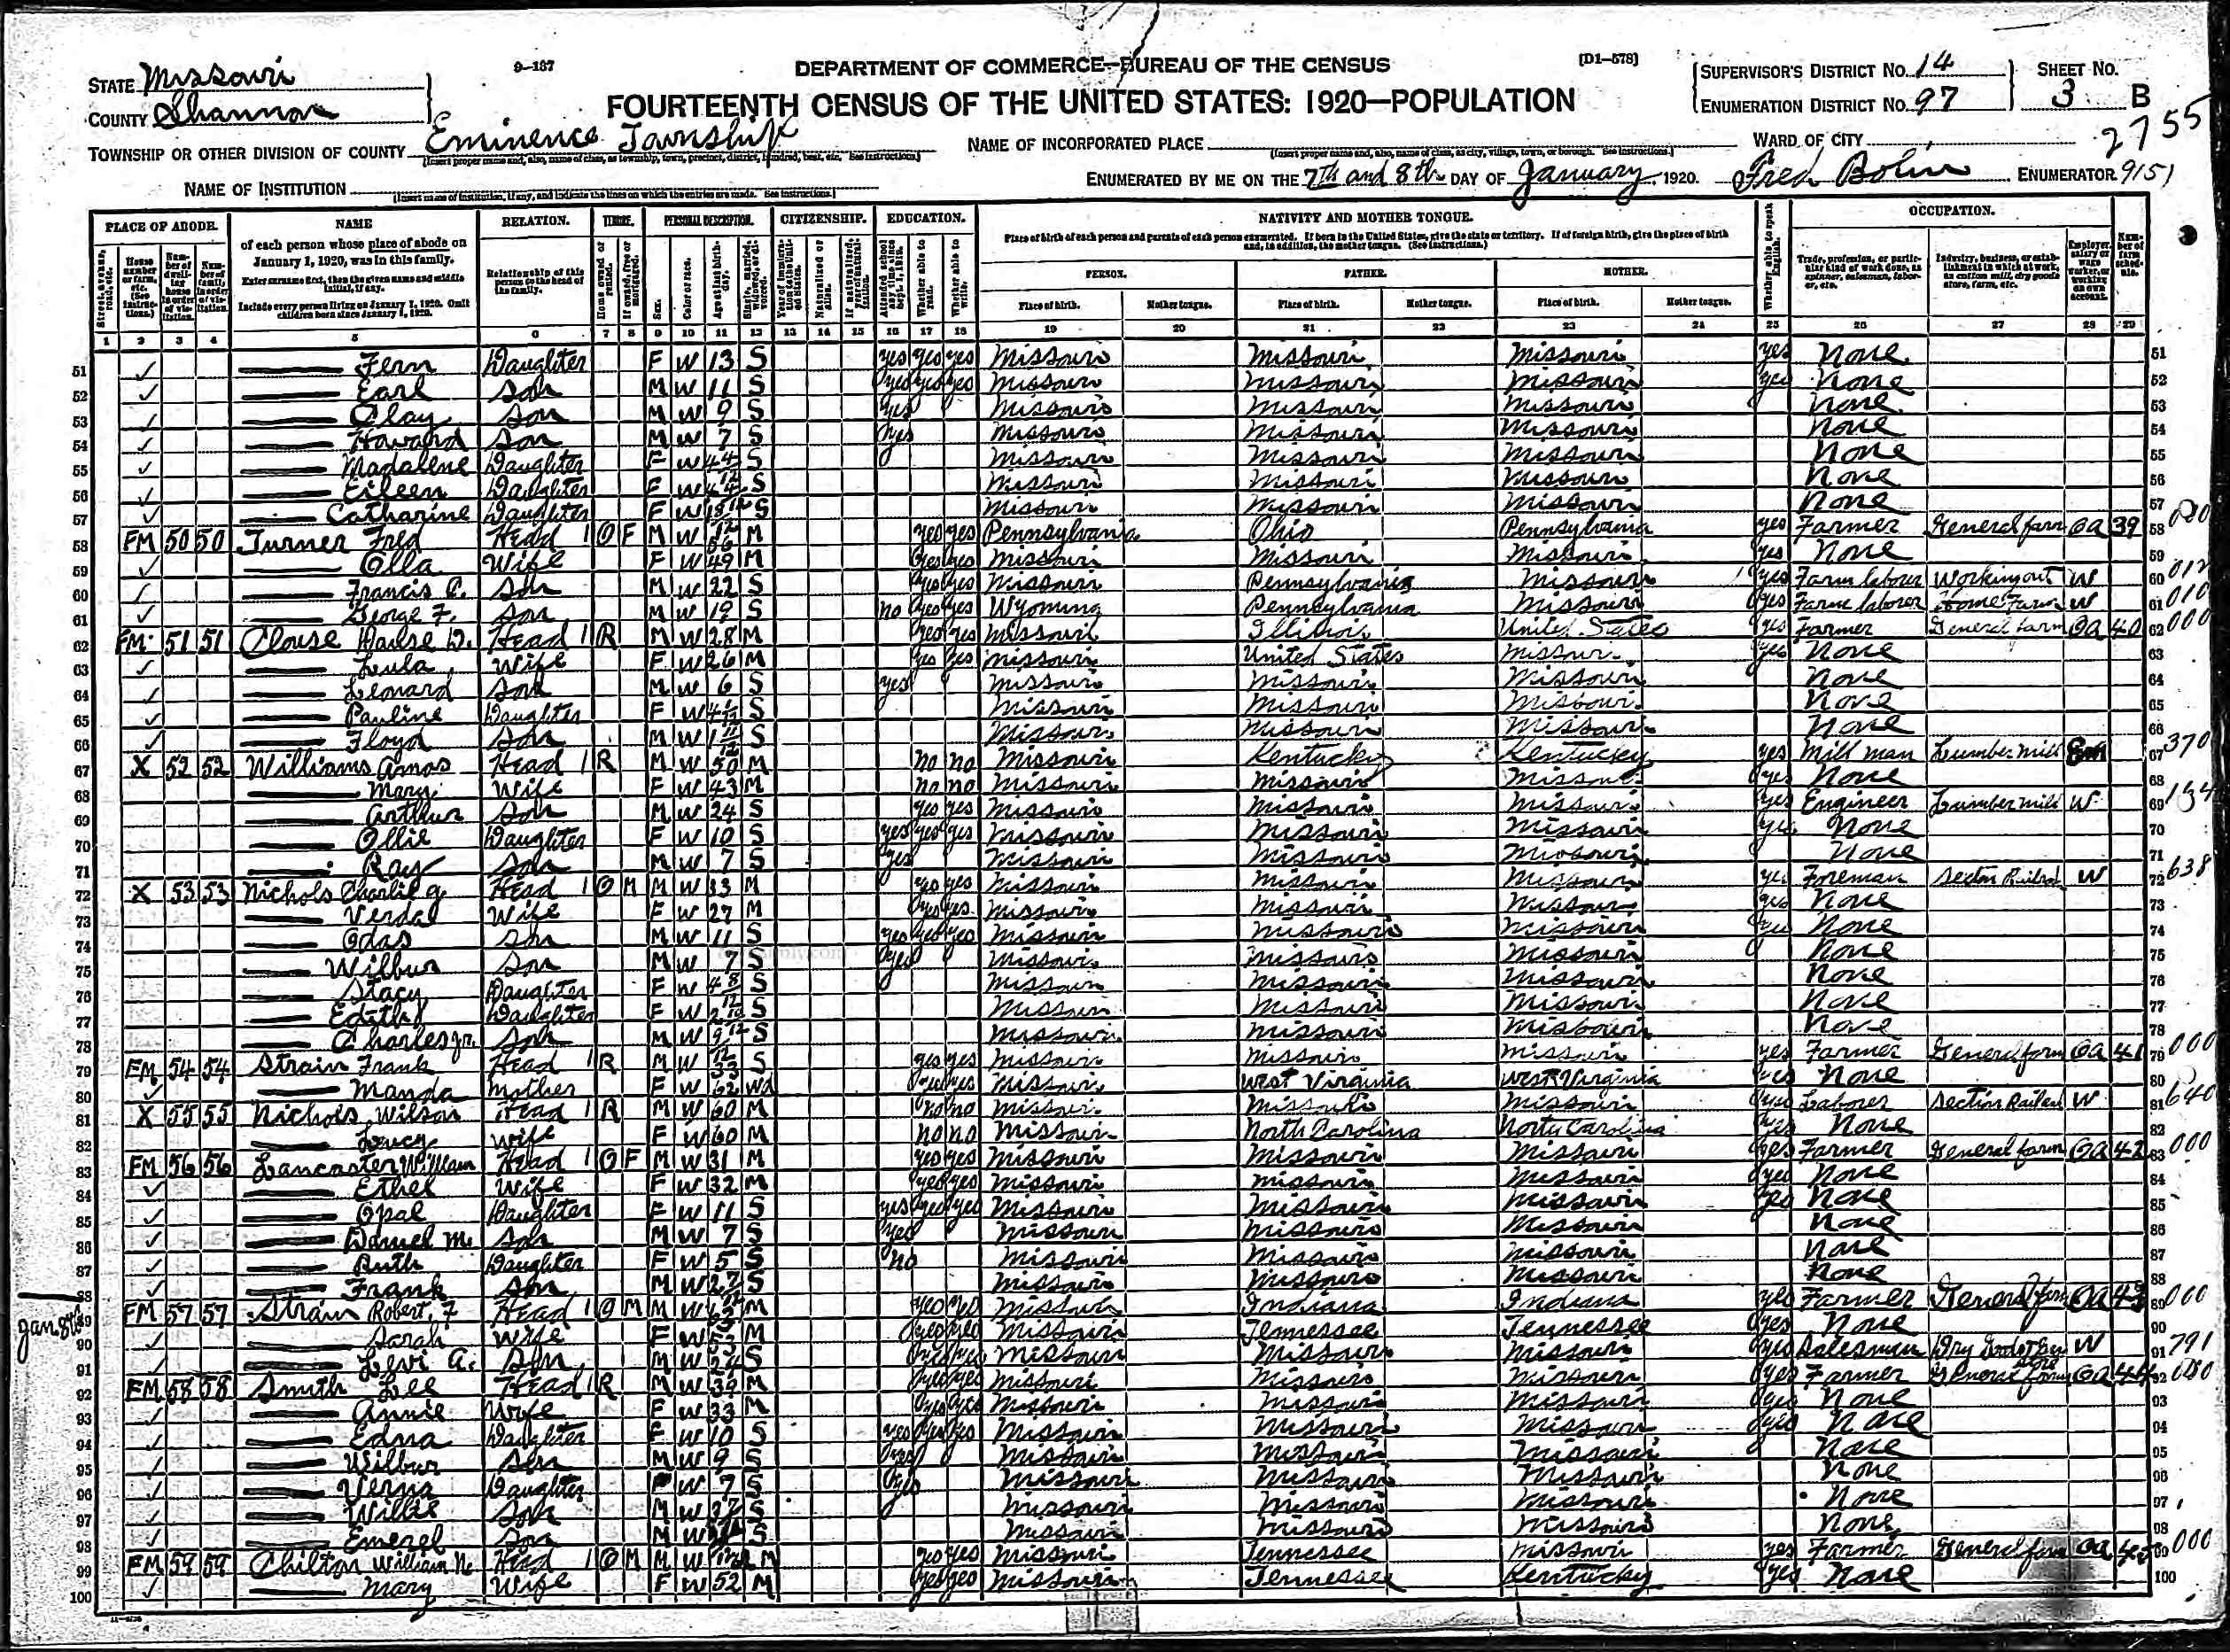 9-137
DEPARTMENT OF COMMERCE—BUREAU OF THE CENSUS
[D1-578]
FOURTEENTH CENSUS OF THE UNITED STATES: 1920—POPULATION
STATE Missouri
COUNTY Shannon
TOWNSHIP OR OTHER DIVISION OF COUNTY Eminence Township
NAME OF INSTITUTION
NAME OF INCORPORATED PLACE
SUPERVISOR'S DISTRICT NO. 14
ENUMERATION DISTRICT NO. 97
SHEET NO. 3 B
WARD OF CITY
2755
ENUMERATED BY ME ON THE 7th and 8th DAY OF January, 1920. Fred Bolin ENUMERATOR 9151
PLACE OF ABODE. NAME RELATION. TENURE. PERSONAL DESCRIPTION. CITIZENSHIP. EDUCATION. NATIVITY AND MOTHER TONGUE. OCCUPATION.
of each person whose place of abode on January 1, 1920, was in this family.
Enter surname first, then the given name and middle initial, if any.
Include every person living on January 1, 1920. Omit children born since January 1, 1920.
Relationship of this person to the head of the family.
Place of birth of each person and parents of each person enumerated. If born in the United States, give the state or territory. If of foreign birth, give the place of birth and, in addition, the mother tongue. (See Instructions.)
PERSON. FATHER. MOTHER.
Place of birth. Mother tongue. Place of birth. Mother tongue. Place of birth. Mother tongue.
1 2 3 4 5 6 7 8 9 10 11 12 13 14 15 16 17 18 19 20 21 22 23 24 25 26 27 28 29
51 Fern Daughter F W 13 S yes yes yes Missouri Missouri Missouri yes None 51
52 Earl Son M W 11 S yes yes yes Missouri Missouri Missouri yes None 52
53 Clay Son M W 9 S yes Missouri Missouri Missouri None 53
54 Howard Son M W 7 S yes Missouri Missouri Missouri None 54
55 Madalene Daughter F W S Missouri Missouri Missouri None 55
56 Eileen Daughter F W S Missouri Missouri Missouri None 56
57 Catharine Daughter F W S Missouri Missouri Missouri None 57
58 FM 50 50 Turner Fred Head 1 O F M W 56 M yes yes Pennsylvania Ohio Pennsylvania yes Farmer General farm OA 39 58
59 Olla Wife F W 49 M yes yes Missouri Missouri Missouri yes None 59
60 Francis C. Son M W 22 S yes yes Missouri Pennsylvania Missouri yes Farm laborer Working out W 60 012
61 George F. Son M W 19 S no yes yes Wyoming Pennsylvania Missouri yes Farm laborer Home Farm W 61 010
62 FM 51 51 Clouse D. Head 1 R M W 28 M yes yes Missouri Illinois United States yes Farmer General farm OA 40 62 000
63 Lula Wife F W 26 M yes yes Missouri United States Missouri yes None 63
64 Leonard Son M W 6 S yes Missouri Missouri Missouri None 64
65 Pauline Daughter F W S Missouri Missouri Missouri None 65
66 Floyd Son M W 1 11/12 S Missouri Missouri Missouri None 66
67 X 52 52 Williams Amos Head 1 R M W 50 M no no Missouri Kentucky Kentucky yes Mill man Lumber mill Em 67 370
68 Mary Wife F W 43 M no no Missouri Missouri Missouri yes None 68
69 Arthur Son M W 24 S yes yes Missouri Missouri Missouri yes Engineer Lumber mill W 69
70 Ollie Daughter F W 10 S yes yes yes Missouri Missouri Missouri yes None 70
71 Ray Son M W 7 S yes Missouri Missouri Missouri None 71
72 X 53 53 Nichols Charlie G Head 1 O M M W 33 M yes yes Missouri Missouri Missouri yes Foreman Section Railroad W 72 638
73 Verda Wife F W 27 M yes yes Missouri Missouri Missouri yes None 73
74 Odas Son M W 11 S yes yes yes Missouri Missouri Missouri yes None 74
75 Wilbur Son M W 7 S yes Missouri Missouri Missouri None 75
76 Stacy Daughter F W 4 8/12 S Missouri Missouri Missouri None 76
77 Edith Daughter F W 2 10/12 S Missouri Missouri Missouri None 77
78 Charles Jr. Son M W 9/12 S Missouri Missouri Missouri None 78
79 FM 54 54 Strain Frank Head 1 R M W 33 S yes yes Missouri Missouri Missouri yes Farmer General farm OA 41 79 000
80 Manda Mother F W 62 Wd yes yes Missouri West Virginia West Virginia yes None 80
81 X 55 55 Nichols Wilson Head 1 R M W 60 M no no Missouri Missouri Missouri yes Laborer Section Railroad W 81 640
82 Lucy Wife F W 60 M no no Missouri North Carolina North Carolina yes None 82
83 FM 56 56 Lancaster William Head 1 O F M W 31 M yes yes Missouri Missouri Missouri yes Farmer General farm OA 42 83 000
84 Ethel Wife F W 32 M yes yes Missouri Missouri Missouri yes None 84
85 Opal Daughter F W 11 S yes yes yes Missouri Missouri Missouri yes None 85
86 Daniel M. Son M W 7 S yes Missouri Missouri Missouri None 86
87 Ruth Daughter F W 5 S no Missouri Missouri Missouri None 87
88 Frank Son M W S Missouri Missouri Missouri None 88
Jan 8th
89 FM 57 57 Strain Robert F Head 1 O M M W M yes yes Missouri Indiana Indiana yes Farmer General farm OA 43 89 000
90 Sarah Wife F W 53 M yes yes Missouri Tennessee Tennessee yes None 90
91 Levi A. Son M W 24 S yes yes Missouri Missouri Missouri yes Salesman W 91 791
92 FM 58 58 Smith Lee Head 1 R M W 39 M yes yes Missouri Missouri Missouri yes Farmer General farm OA 44 92
93 Annie Wife F W 33 M yes yes Missouri Missouri Missouri yes None 93
94 Edna Daughter F W 10 S yes yes yes Missouri Missouri Missouri yes None 94
95 Wilbur Son M W 9 S yes Missouri Missouri Missouri None 95
96 Verna Daughter F W 7 S yes Missouri Missouri Missouri None 96
97 Willie Son M W S Missouri Missouri Missouri None 97
98 Son M W S Missouri Missouri Missouri None 98
99 FM 59 59 Chilton William N. Head 1 O M M W M yes yes Missouri Tennessee Missouri yes Farmer General farm OA 45 99 000
100 Mary Wife F W 52 M yes yes Missouri Tennessee Kentucky yes None 100